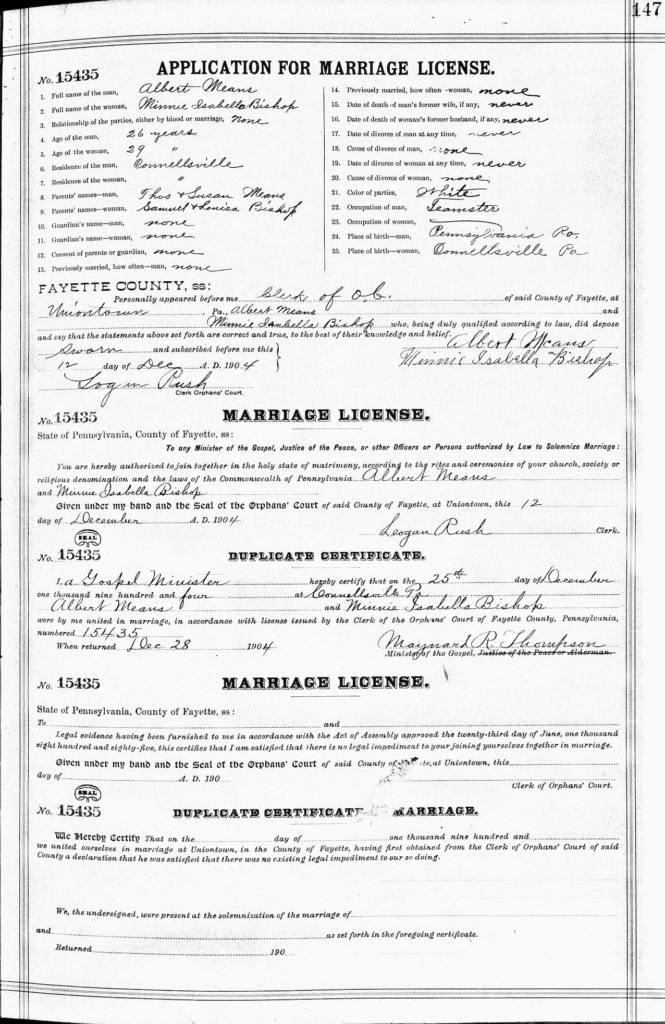 147
APPLICATION FOR MARRIAGE LICENSE.
No. 15435
1. Full name of the man, Albert Means
2. Full name of the woman, Minnie Isabella Bishop
3. Relationship of the parties, either by blood or marriage, None
4. Age of the man, 26 years
5. Age of the woman, 29 "
6. Residence of the man, Connellsville
7. Residence of the woman, "
8. Parents' names—man, Thos & Susan Means
9. Parents' names—woman, Samuel & Louisa Bishop
10. Guardian's name—man, none
11. Guardian's name—woman, none
12. Consent of parents or guardian, none
13. Previously married, how often—man, none
14. Previously married, how often—woman, none
15. Date of death of man's former wife, if any, never
16. Date of death of woman's former husband, if any, never
17. Date of divorce of man at any time, never
18. Cause of divorce of man, none
19. Date of divorce of woman at any time, never
20. Cause of divorce of woman, none
21. Color of parties, White
22. Occupation of man, Teamster
23. Occupation of woman,
24. Place of birth—man, Pennsylvania Pa.
25. Place of birth—woman, Connellsville Pa
FAYETTE COUNTY, SS:
Personally appeared before me Clerk of O.C. of said County of Fayette, at
Uniontown Pa., Albert Means and
Minnie Isabella Bishop who, being duly qualified according to law, did depose
and say that the statements above set forth are correct and true, to the best of their knowledge and belief.
Sworn and subscribed before me this
12 day of Dec A. D. 1904
Logan Rush
Clerk Orphans' Court.
Albert Means
Minnie Isabella Bishop
No. 15435
MARRIAGE LICENSE.
State of Pennsylvania, County of Fayette, ss:
To any Minister of the Gospel, Justice of the Peace, or other Officers or Persons authorized by Law to Solemnize Marriage:
You are hereby authorized to join together in the holy state of matrimony, according to the rites and ceremonies of your church, society or
religious denomination and the laws of the Commonwealth of Pennsylvania Albert Means
and Minnie Isabella Bishop
Given under my hand and the Seal of the Orphans' Court of said County of Fayette, at Uniontown, this 12
day of December A. D. 1904
Logan Rush Clerk.
SEAL
No. 15435
DUPLICATE CERTIFICATE.
I, a Gospel Minister hereby certify that on the 25th day of December
one thousand nine hundred and four at Connellsville Pa
Albert Means and Minnie Isabella Bishop
were by me united in marriage, in accordance with license issued by the Clerk of the Orphans' Court of Fayette County, Pennsylvania,
numbered 15435
When returned Dec 28 1904
Maynard R. Thompson
Minister of the Gospel, Justice of the Peace or Alderman.
No. 15435
MARRIAGE LICENSE.
State of Pennsylvania, County of Fayette, ss:
To and
Legal evidence having been furnished to me in accordance with the Act of Assembly approved the twenty-third day of June, one thousand
eight hundred and eighty-five, this certifies that I am satisfied that there is no legal impediment to your joining yourselves together in marriage.
Given under my hand and the Seal of the Orphans' Court of said County of te, at Uniontown, this
day of A. D. 190
Clerk of Orphans' Court.
SEAL
No. 15435
DUPLICATE CERTIFICATE MARRIAGE.
We Hereby Certify That on the day of one thousand nine hundred and
we united ourselves in marriage at Uniontown, in the County of Fayette, having first obtained from the Clerk of Orphans' Court of said
County a declaration that he was satisfied that there was no existing legal impediment to our so doing.
We, the undersigned, were present at the solemnization of the marriage of
and as set forth in the foregoing certificate.
Returned 190